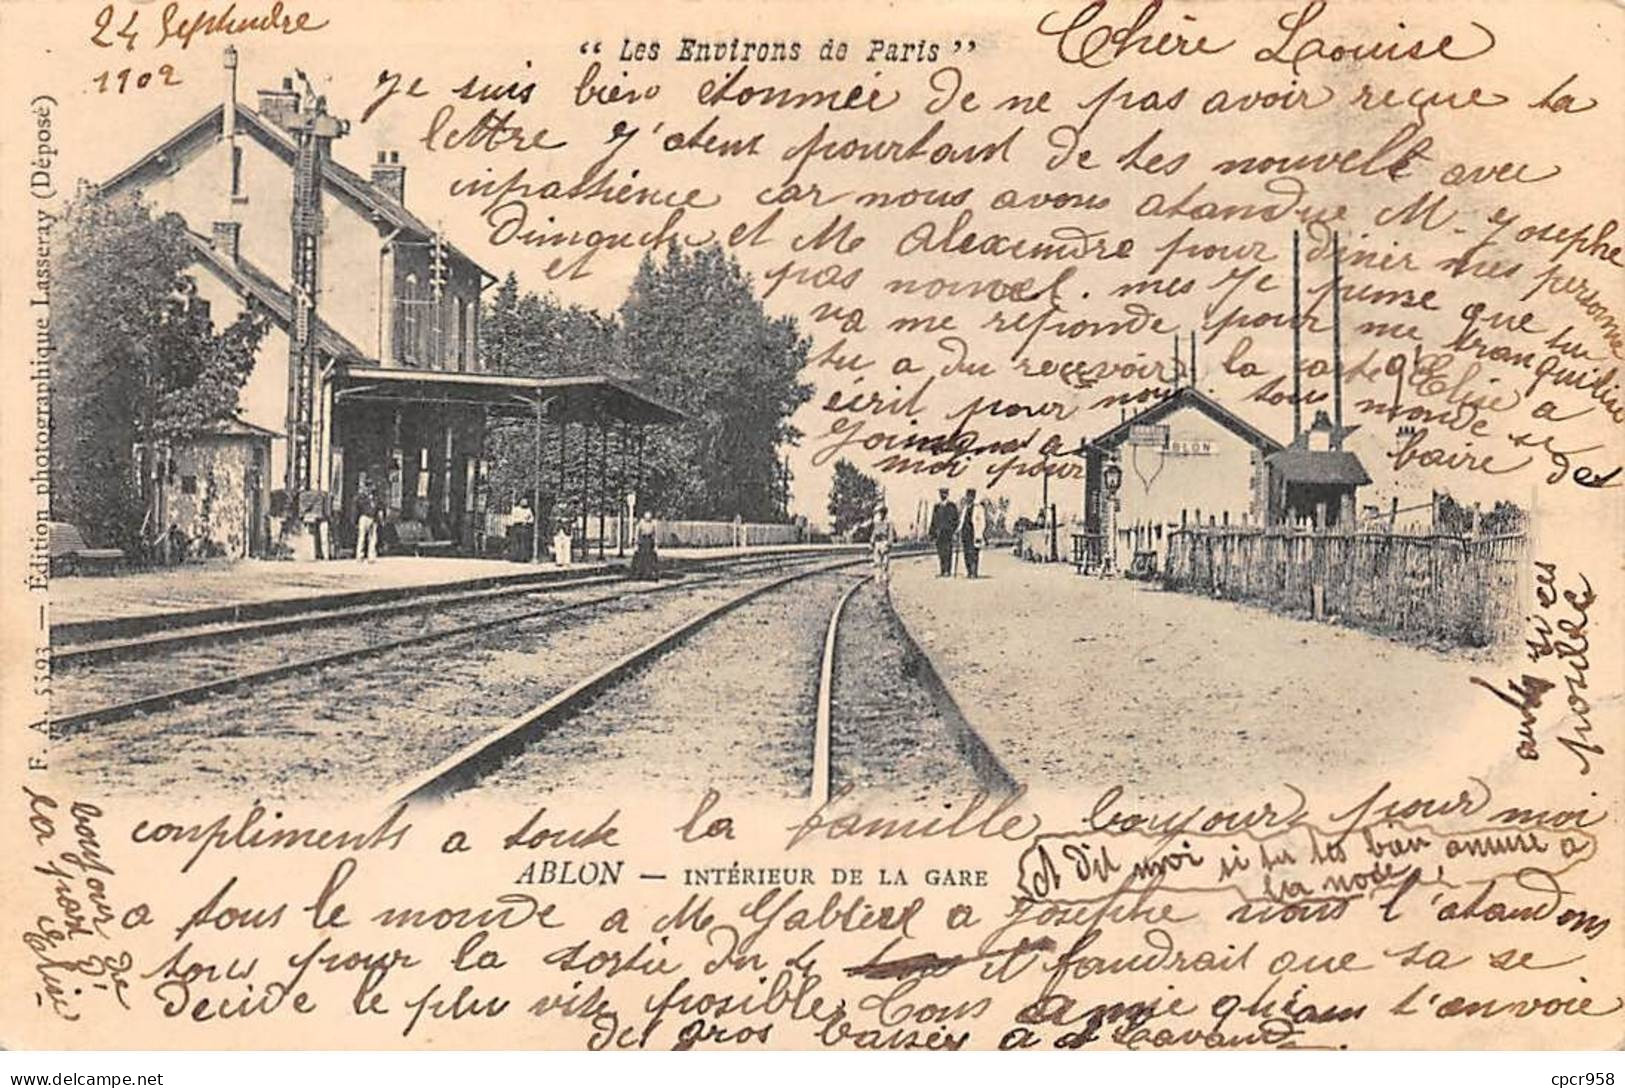 24 Septembre
1902
“ Les Environs de Paris ”
Chère Laouise
Je suis bien étonnée de ne pas avoir reçue ta
lettre J'atent pourtant de tes nouvelt avec
inpassience car nous avons atandue M. Josephe
Dimanche et M Alexendre pour diner mes personne
et pas nouvel. mes Je pense que tu
va me reponde pour me tranquilise
tu a du recevoir la carte q' Elise a
écrit pour nous tous monde se
Joingnent a baire des
moi pour
ABLON
F. A. 5593 — Édition photographique Lasseray (Déposé)
si ces
posible
compliments a toute la famille bonjour pour moi
ABLON — INTÉRIEUR DE LA GARE
Et dit moi si tu tes bien amuse a
la noce
a tous le monde a M Gabriel a Josephe nous l'atandons
tous pour la sortie du il faudrait que sa se
decide le plu vite posible Tous amie qui t'envoie
des gros basser a
bonjour de
la part d'
Elise
delcampe.net
cpcr958